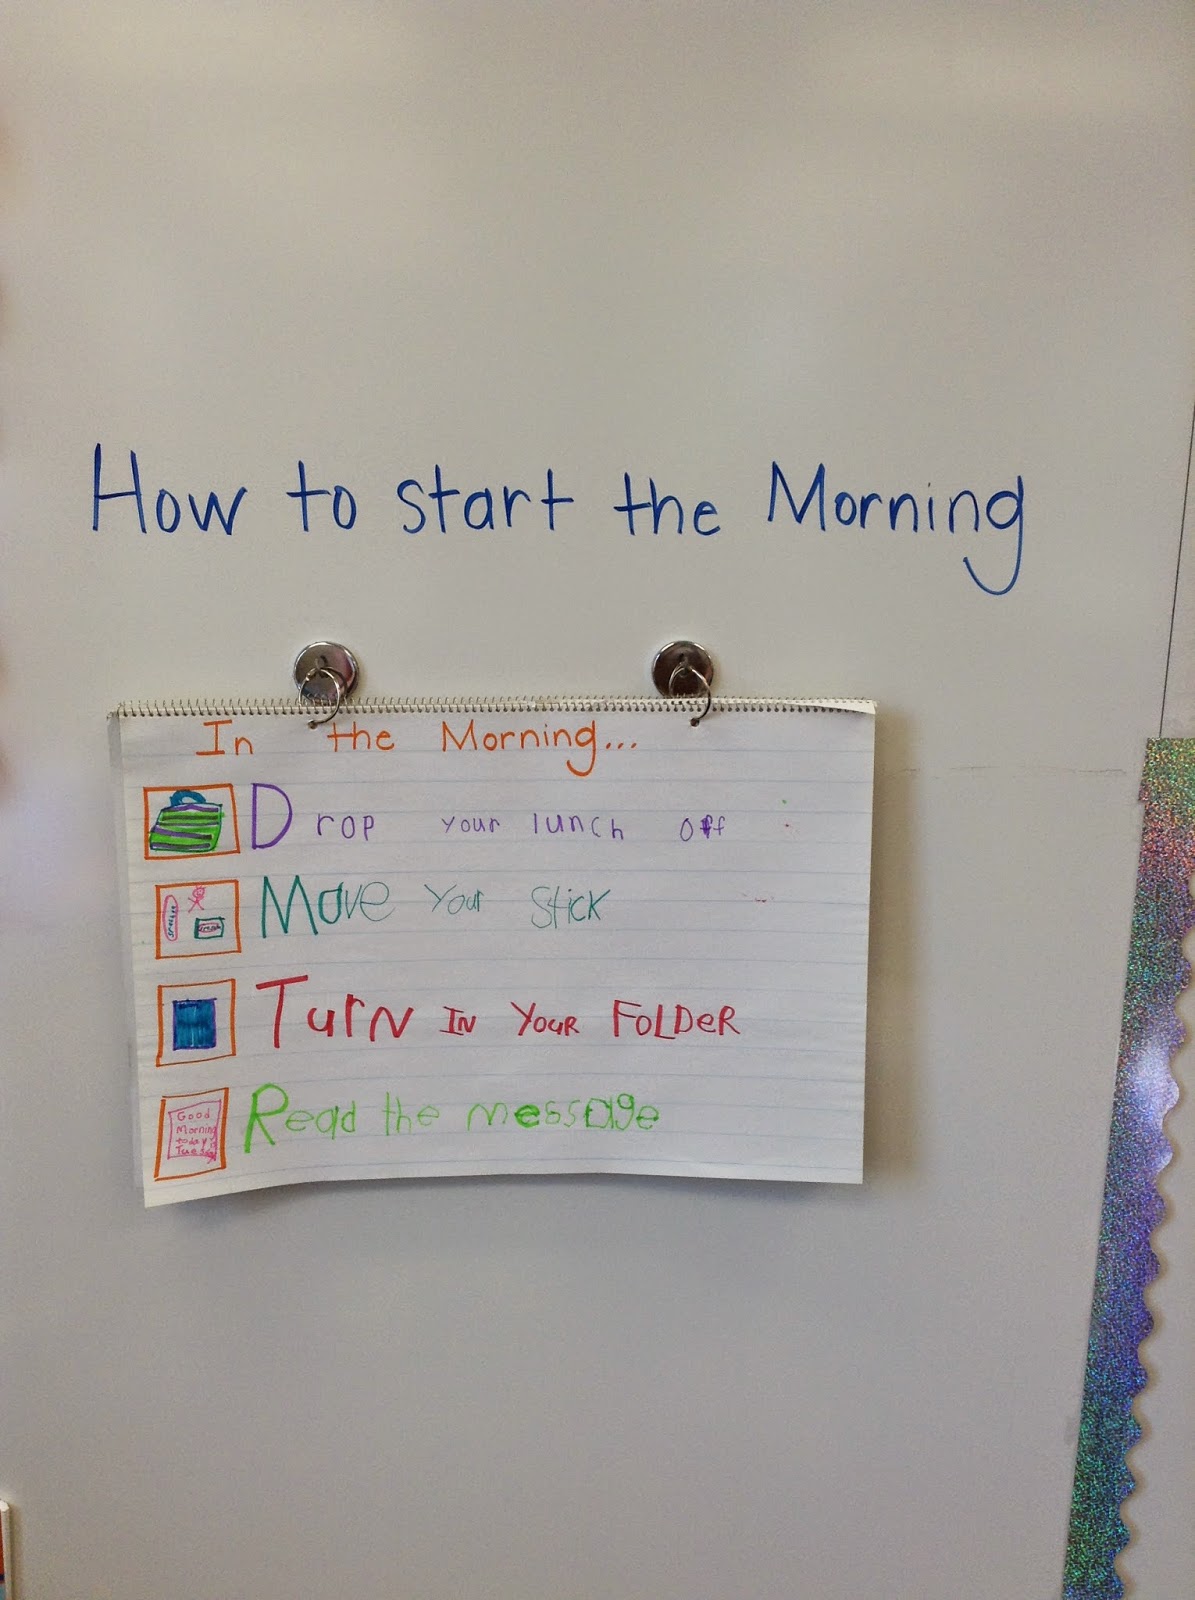 How to start the Morning
In the Morning...
Drop your lunch off
Move Your Stick
TurN IN YOUR FOLDeR
Read the message
Good
Morning
today is